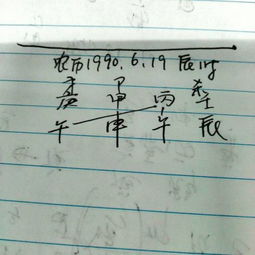 农历1990.6.19 辰时
庚 甲 丙 壬
午 申 午 辰